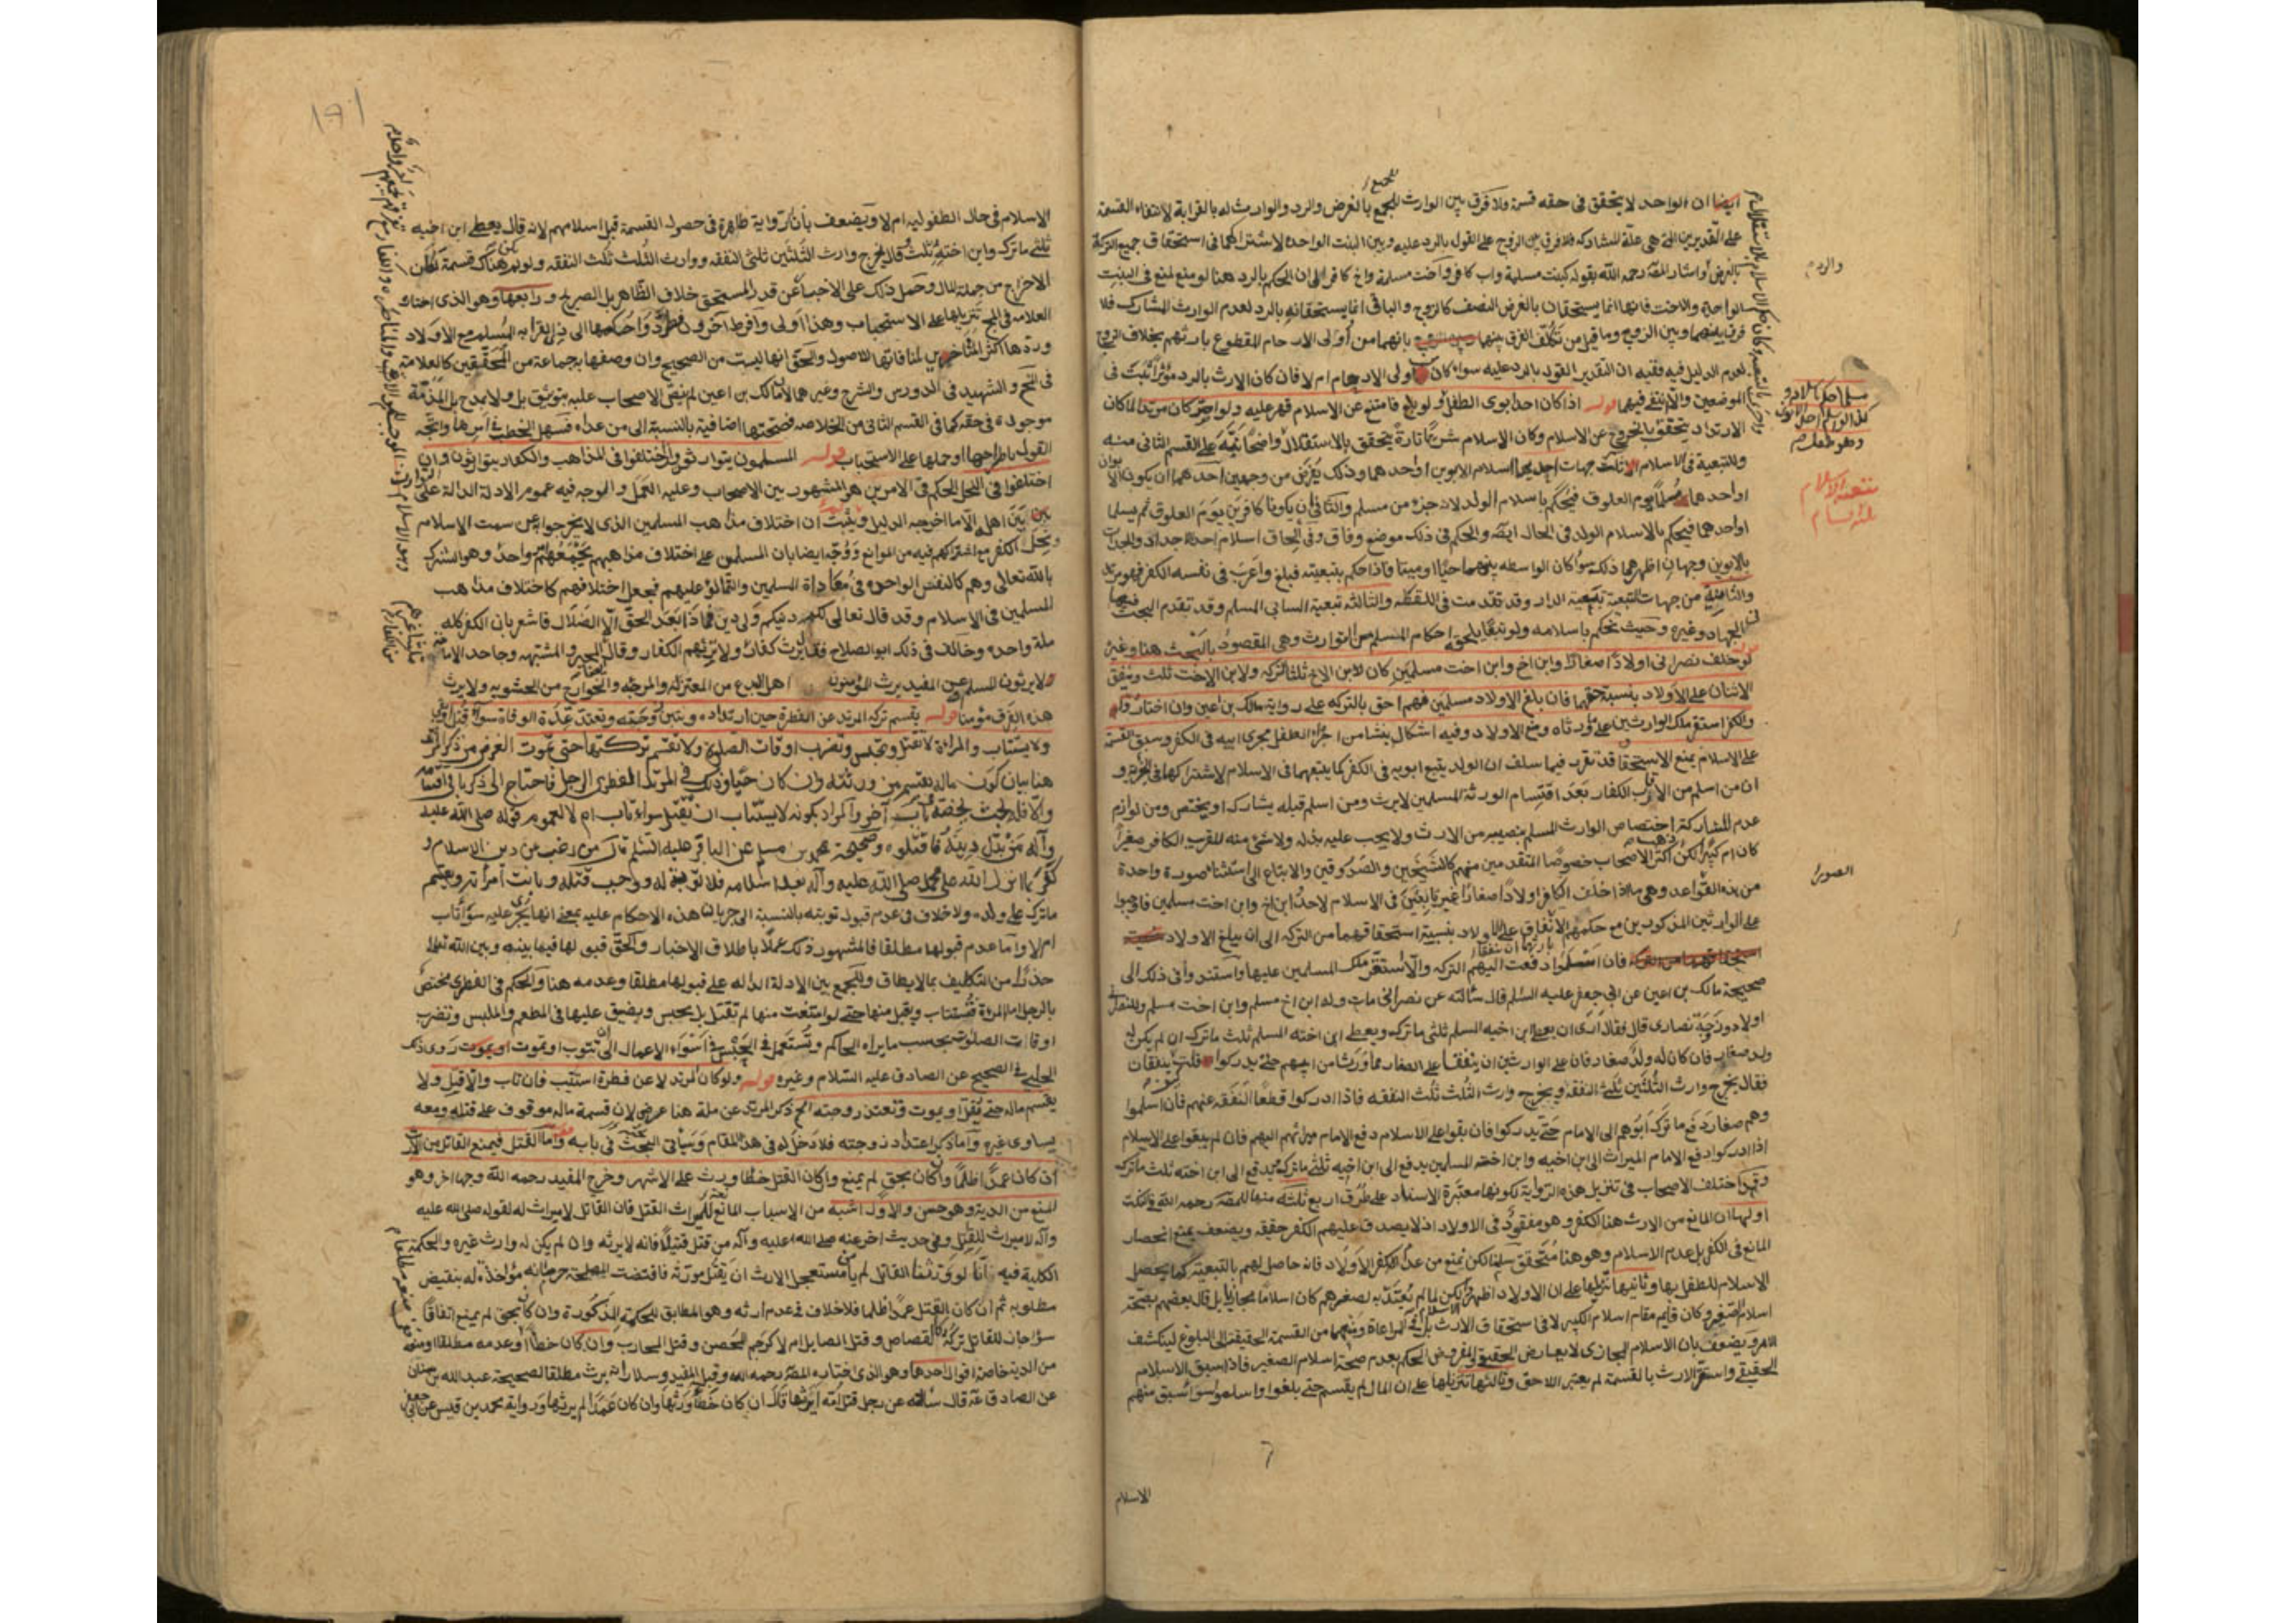 ايضا ان الواحد لا يتحقق فى حقه قسمة فلا فرق بين الوارث بالفرض والرد والوارث له بالقرابة لانتفاء القسمة
على التقديرين التى هى علة المشاركة فلا فرق بين الزوج على القول بالرد عليه وبين البنت الواحدة لاشتراكهما فى استحقاق جميع التركة
بالفرض واشار المصنف رحمه الله بقوله كبنت مسلمة واب كافر واخت مسلمة واخ كافر الى ان الحكم بالرد هنا لو منع لمنع فى البنت
الواحدة والاخت فانهما انما يستحقان بالفرض النصف كالزوج والباقى انما يستحقانه بالرد لعدم الوارث المشارك فلا
فرق بينهما وبين الزوج وما قيل من تكلف الفرق بينهما بانهما من أولى الارحام المقطوع بارثهم بخلاف الزوج
لعدم الدليل فيه ففيه ان التقدير القول بالرد عليه سواء كان أولى الارحام ام لا فان كان الارث بالرد مؤثرا ثبت فى
الموضعين والا انتفى فيهما قوله اذا كان احد ابوى الطفل
الارتداد يتحقق بالخروج عن الاسلام وكان الاسلام تارة يتحقق بالاستقلال واضحا نبه على القسم الثانى منه
وللتبعية فى الاسلام ثلث جهات احديها اسلام الابوين او احدهما وذلك يفرض من وجهين احدهما ان يكون
او احدهما مسلما يوم العلوق فيحكم باسلام الولد لانه جزء من مسلم والثانى ان يكونا كافرين يوم العلوق ثم يسلما
او احدهما فيحكم بالاسلام الولد فى الحال ايضا والحكم فى ذلك موضع وفاق وفى الحاق اسلام احد الاجداد والجدات
بالابوين وجهان اظهرهما ذلك سواء كان الواسطة بينهما حيا او ميتا فاذا حكم بتبعيته فبلغ واعرب فى نفسه الكفر فهو مرتد
والثانية من جهات التبعية تبعية الدار وقد تقدمت فى اللقطة والثالثة تبعية السابى المسلم وقد تقدم البحث فيها
فى الجهاد وغيره وحيث يحكم باسلامه ولو تبعا يلحقه احكام المسلم من التوارث وهى المقصود بالبحث هنا وغيره
لو خلف نصرانى اولادا صغارا وابن اخ وابن اخت مسلمين كان لابن الاخ ثلثا التركة ولابن الاخت ثلث وينفق
الاثنان على الاولاد بنسبة حقهما فان بلغ الاولاد مسلمين فهم احق بالتركة على رواية مالك بن اعين وان اختاروا
الكفر استقر ملك الوارثين على ما ورثاه ومنع الاولاد وفيه اشكال ينشأ من اجراء الطفل مجرى ابيه فى الكفر وسبق القسمة
على الاسلام يمنع الاستحقاق قد تقرر فيما سلف ان الولد يتبع ابويه فى الكفر كما يتبعهما فى الاسلام لاشتراكهما فى الجزئية و
ان من اسلم من الاقارب الكفار بعد اقتسام الورثة المسلمين لا يرث ومن اسلم قبله يشارك او يختص ومن لوازم
عدم المشاركة اختصاص الوارث المسلم بنصيبه من الارث ولا يجب عليه بذله ولا شئ منه للقريب الكافر صغيرا
كان ام كبيرا لكن اكثر الاصحاب خصوصا المتقدمين منهم كالشيخين والصدوقين والاتباع الى استثناء صورة واحدة
من هذه القواعد وهى ما اذا خلف الكافر اولادا صغارا غير تابعين فى الاسلام لاحد وابن اخ وابن اخت مسلمين فاوجبوا
على الوارثين المذكورين مع حكمهم الانفاق على الاولاد بنسبة استحقاقهما من التركة الى ان يبلغ الاولاد
فان اسلموا دفعت اليهم التركة والا استقر ملك المسلمين عليها واستندوا فى ذلك الى
صحيحة مالك بن اعين عن ابى جعفر عليه السلم قال سألته عن نصرانى مات وله ابن اخ مسلم وابن اخت مسلم وللنصرانى
اولاد وزوجة نصارى قال فقال ارى ان يعطى ابن اخيه المسلم ثلثى ما ترك ويعطى ابن اخته المسلم ثلث ما ترك ان لم يكن له
ولد صغار فان كان له ولد صغار فان على الوارثين ان ينفقا على الصغار مما ورثا من ابيهم حتى يدركوا قلت كيف ينفقان
فقال يخرج وارث الثلثين ثلثى النفقة ويخرج وارث الثلث ثلث النفقة فاذا ادركوا قطعا النفقة عنهم فان اسلموا
وهم صغار دفع ما ترك ابوهم الى الامام حتى يدركوا فان بقوا على الاسلام دفع الامام ميراثهم اليهم فان لم يبقوا على الاسلام
اذا ادركوا دفع الامام الميراث الى ابن اخيه وابن اخته المسلمين يدفع الى ابن اخيه ثلثى ما ترك ويدفع الى ابن اخته ثلث ما ترك
وقد اختلف الاصحاب فى تنزيل هذه الرواية لكونها معتبرة الاسناد على طرق اربع ثلثة منها للمصنف رحمه الله فى النكت
اولها ان المانع من الارث هنا الكفر وهو مفقود فى الاولاد اذ لا يصدق عليهم الكفر حقيقة ويضعف بمنع انحصار
المانع فى الكفر بل عدم الاسلام وهو هنا متحقق سلمنا لكن نمنع من عدم الكفر الاولاد فانه حاصل لهم بالتبعية كما يحصل
الاسلام للطفل بها وثانيها تنزيلها على ان الاولاد اظهروا لكن لما لم يعتد به لصغرهم كان اسلاما مجازيا بل قال بعضهم بصحة
اسلام الصغير وكان قائم مقام اسلام الكبير لا فى استحقاق الارث بل فى المراعاة ومنعهما من القسمة الحقيقية الى البلوغ لينكشف
الامر ويضعف بان الاسلام المجازى لا يعارض الحقيقى والمفروض الحكم بعدم صحة اسلام الصغير فاذا سبق الاسلام
الحقيقى واستقر الارث بالقسمة لم يعتبر اللاحق وثالثها تنزيلها على ان المال لم يقسم حتى بلغوا واسلموا سواء سبق منهم
الاسلام
والرد
الصور
191
الاسلام فى حال الطفولية ام لا ويضعف بان الرواية ظاهرة فى حصول القسمة قبل اسلامهم لانه قال يعطى ابن اخيه
ثلثى ما ترك وابن اخته ثلث وقال يخرج وارث الثلثين ثلثى النفقة ووارث الثلث ثلث النفقة ولو لم يكن هناك قسمة لكان
الاخراج من جملة المال وحمل ذلك على الاخبار عن قدر المستحق خلاف الظاهر بل الصريح ورابعها وهو الذى اختاره
العلامة فى المخ تنزيلها على الاستحباب وهذا اولى وافرط آخرون فطردوا حكمها الى ذى القرابة المسلم مع الاولاد
وردها اكثر المتأخرين لمنافاتها للاصول والحق انها ليست من الصحيح وان وصفها به جماعة من المحققين كالعلامة
فى المخ والشهيد فى الدروس والشرح وغيرهما لان مالك بن اعين لم ينص الاصحاب عليه بتوثيق بل ولا بمدح بل المذمة
موجودة فى حقه كما فى القسم الثانى من الخلاصة فصحتها اضافية بالنسبة الى من عداه فسهل الخطب فى امرها واتجه
القول باطراحها او حملها على الاستحباب قوله المسلمون يتوارثون وان اختلفوا فى المذاهب والكفار يتوارثون وان
اختلفوا فى النحل الحكم فى الامرين هو المشهور بين الاصحاب وعليه العمل والوجه فيه عموم الادلة الدالة على التوارث
بين اهله الا ما اخرجه الدليل ويثبت ان اختلاف مذاهب المسلمين الذى لا يخرجوا عن سمت الاسلام
ونحل الكفر مع اشتراكهم فيه من الموانع ووجه ايضا بان المسلمين على اختلاف مذاهبهم يجمعهم واحد وهو الشرك
بالله تعالى وهم كالنفس الواحدة فى معاداة المسلمين والتمالؤ عليهم فجعل اختلافهم كاختلاف مذاهب
المسلمين فى الاسلام وقد قال تعالى لكم دينكم ولى دين فماذا بعد الحق الا الضلال فاشعر بان الكفر كله
ملة واحدة وخالف فى ذلك ابو الصلاح فقال يرث كفار ولا يرثهم الكفار وقال المجبر والمشبه وجاحد الامامة
لا يرثون المسلم وعن المفيد يرث المؤمنون اهل البدع من المعتزلة والمرجئة والخوارج من الحشوية ولا يرث
هذه الفرق مؤمنا قوله يقسم تركة المرتد عن الفطرة حين ارتداده وتبين زوجته وتعتد عدة الوفاة سواء قتل او بقى
ولا يستتاب والمرأة لا تقتل وتحبس وتضرب اوقات الصلوة ولا تقسم تركتها حتى تموت الغرض من ذكر المرتد
هنا بيان كون ماله يقسم بين ورثته وان كان حيا وذلك فى المرتد الفطرى الرجل فاحتاج الى ذكر باقى اقسامه
والا فللبحث يخصه باب آخر والمراد بكونه لا يستتاب انه يقتل سواء تاب ام لا لعموم قوله صلى الله عليه
وآله من بدل دينه فاقتلوه وصحيحة محمد بن مسلم عن الباقر عليه السلم قال من رغب عن دين الاسلام و
كفر بما انزل الله على محمد صلى الله عليه وآله بعد اسلامه فلا توبة له ووجب قتله وبانت امرأته ويقسم
ما ترك على ولده ولا خلاف فى عدم قبول توبته بالنسبة الى جريان هذه الاحكام عليه بمعنى انها تجرى عليه سواء تاب
ام لا واما عدم قبولها مطلقا فالمشهور ذلك عملا باطلاق الاخبار والحق قبولها فيما بينه وبين الله تعالى
حذرا من التكليف بما لا يطاق وللجمع بين الادلة الدالة على قبولها مطلقا وعدمه هنا والحكم فى الفطرى مختص
بالرجل اما المرأة فتستتاب ويقبل منها حتى لو امتنعت منها لم تقتل بل يحبس ويضيق عليها فى المطعم والملبس وتضرب
اوقات الصلوة بحسب ما يراه الحاكم وتستعمل فى الحبس فى اسوأ الاعمال الى ان تتوب او تموت روى ذلك
الحلبى فى الصحيح عن الصادق عليه السلام وغيره قوله ولو كان المرتد لا عن فطرة استتيب فان تاب والا قتل ولا
يقسم ماله حتى يقتل او يموت وتعتد زوجته الخ ذكر المرتد عن ملة هنا عرضى لان قسمة ماله موقوف على قتله ومعه
يساوى غيره واما ذكر اعتداد زوجته فلا دخل له فى هذا المقام وسيأتى البحث عنه فى بابه قوله واما القتل فيمنع القاتل من الارث
ان كان عمدا ظلما وان كان بحق لم يمنع وان كان القتل خطأ ورث على الاشهر وخرج المفيد رحمه الله وجها اخر وهو
المنع من الدية وهو حسن والاول اشبه من الاسباب المانعة للميراث القتل فان القاتل لا ميراث له لقوله صلى الله عليه
وآله لا ميراث للقاتل وفى حديث اخر عنه صلى الله عليه وآله من قتل قتيلا فانه لا يرثه وان لم يكن له وارث غيره والحكمة
الكلية فيه انا لو ورثنا القاتل لم يأمن مستعجل الارث ان يقتل مورثه فاقتضت المصلحة حرمانه مؤاخذة له بنقيض
مطلوبه ثم ان كان القتل عمدا ظلما فلا خلاف فى عدم ارثه وهو المطابق للحكمة المذكورة وان كان بحق لم يمنع اتفاقا
سواء جاز للقاتل تركه كالقصاص وقتل الصايل ام لا كرجم المحصن وقتل المحارب وان كان خطأ او عدمه مطلقا او منعه
من الدية خاصة اقوال احدها وهو الذى اختاره المصنف رحمه الله وقبله المفيد وسلار انه يرث مطلقا لصحيحة عبد الله بن سنان
عن الصادق ع قال سألته عن رجل قتل امه ايرثها قال ان كان خطأ ورثها وان كان عمدا لم يرثها ورواية محمد بن قيس عن ابى جعفر